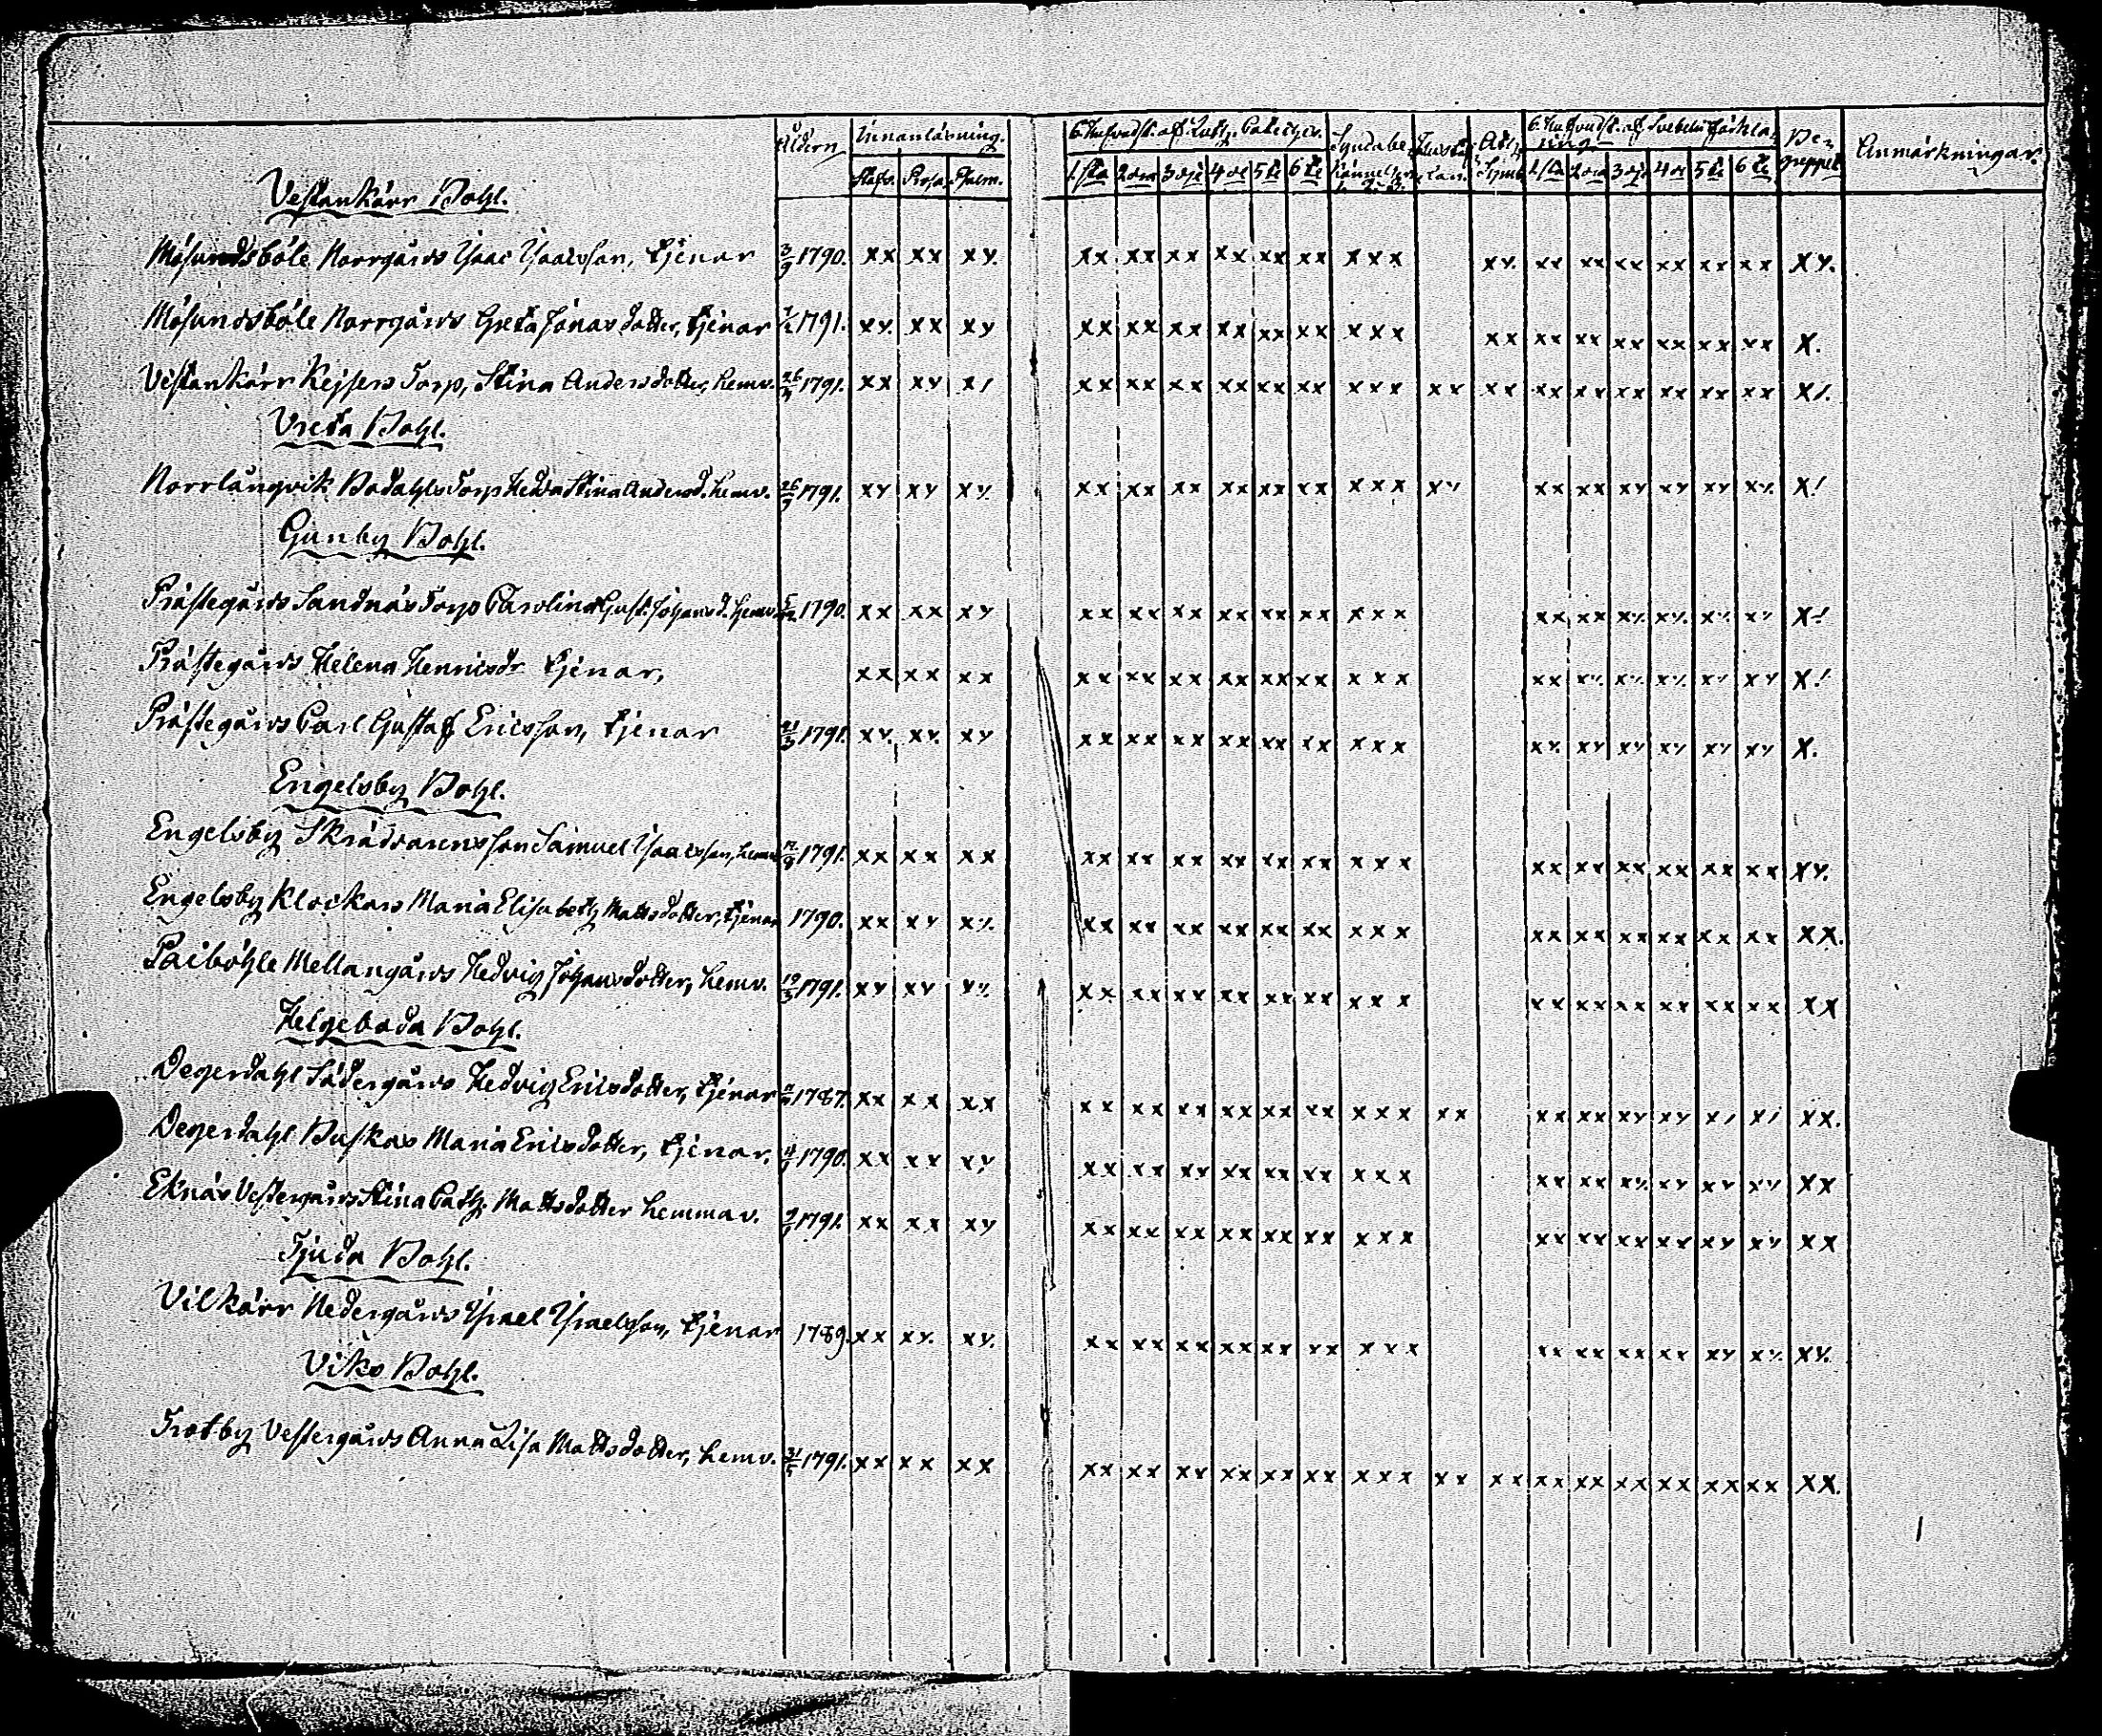 Åldern Innanläsning. 6. Hufvudst. af Luth. Cateches. Syndabe Hustaf Ath. 6. Hufvudst. af Svebelii förkla Be-
ring greppet Anmärkningar.
Stafv. Prosa. Psalm. 1.sta 2dra 3dje 4de 5te 6te kännelsen lan. Symb. 1.sta 2dra 3dje 4de 5te 6te
1. 2. 3.
Vestankärr Bohl.
Mösundsböle Norrgårds Isaac Isaacsson, tjenar 3/9 1790. xx xx xy. xx xx xx xx xx xx xxx xy. xx xx xx xx xx xx xy.
Mösundsböle Norrgårds Greta Jonas dotter, tjenar 1791. xy. xx xy xx xx xx xx xx xx xxx xx xx xx xx xx xx xx x.
Vestankärr Kejsars Torp, Stina Anders dotter, hemv. 1791. xx xy x/ xx xx xx xx xx xx xxx xx xx xx xx xx xx xx xx x/.
Vreta Bohl.
Norrlångvik Bodahls Torp Hedda Stina Andersd. hemv. 26/9 1791. xy xy xy. xx xx xx xx xx xx xxx xy xx xx xy xy xy xy. x/
Gunby Bohl.
Prästegårds Sandnäs Torp Carolina Gust. Johansd. hemv. 1790. xx xx xy xx xx xx xx xx xx xxx xx xx xy. xy. xy. xy x/
Prästegårds Helena Henricsdr tjenar, xx xx xx xx xx xx xx xx xx xxx xx xy. xy. xy. xy xy x/
Prästegårds Carl Gustaf Ericsson, tjenar 21/3 1791. xy. xy. xy xx xx xx xx xx xx xxx xy. xy xy xy xy xy x.
Engelsby Bohl.
Engelsby Skräddarens son Samuel Isaacsson, hemv. 1791. xx xx xx xx xx xx xx xx xx xxx xx xx xx xx xx xx xy.
Engelsby Klockars Maria Elisabeth Matts dotter, tjenar 1790. xx xy xy. xx xx xx xx xx xx xxx xx xx xx xx xx xx xx.
Paiböhle Mellangårds Hedvig Johans dotter, hemv. 19/5 1791. xy xy xy. xx xx xx xx xx xx xxx xx xx xx xx xx xx xx
Helgeboda Bohl.
Degerdahl Södergårds Hedvig Erics dotter, tjenar 1787. xx xx xx xx xx xx xx xx xx xxx xx xx xx xy xy x/ x/ xx.
Degerdahl Buskas Maria Erics dotter, tjenar, 1790. xx xx xy xx xx xx xx xx xx xxx xx xx xy. xy xy xy xx
Eknäs Vestergårds Stina Cath. Matts dotter hemmav. 1791. xx xx xy xx xx xx xx xx xx xxx xx xx xx xx xy xy xx
Tjuda Bohl.
Vilkärr Nedergårds Israel Israelsson, tjenar 1789. xx xy. xy. xx xx xx xx xx xx xxx xx xx xx xx xy xy. xy.
Viks Bohl.
Trotby Vestergårds Anna Lisa Matts dotter, hemv. 31/5 1791. xx xx xx xx xx xx xx xx xx xxx xx xx xx xx xx xx xx xx xx.